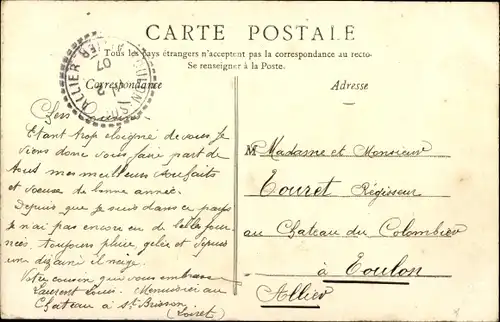 CARTE POSTALE
Tous les pays étrangers n'acceptent pas la correspondance au recto-
Se renseigner à la Poste.
Correspondance
Adresse
TOULON
ALLIER
07
Chers
Etant trop éloigné de vous, je
viens donc vous faire part de
tout mes meilleurs souhaits
et voeux de bonne année.
Depuis que je suis dans ce pays
je n'ai pas encore eu de belles jour-
nées. toujours pluie, gelée et depuis
une dizaine il neige.
Votre cousin qui vous embrasse
Laurent Louis. Menuisier au
Chateau à St Brisson.
(Loiret)
M Madame et Monsieur
Touret Régisseur
au Chateau du Colombier
à Toulon
Allier